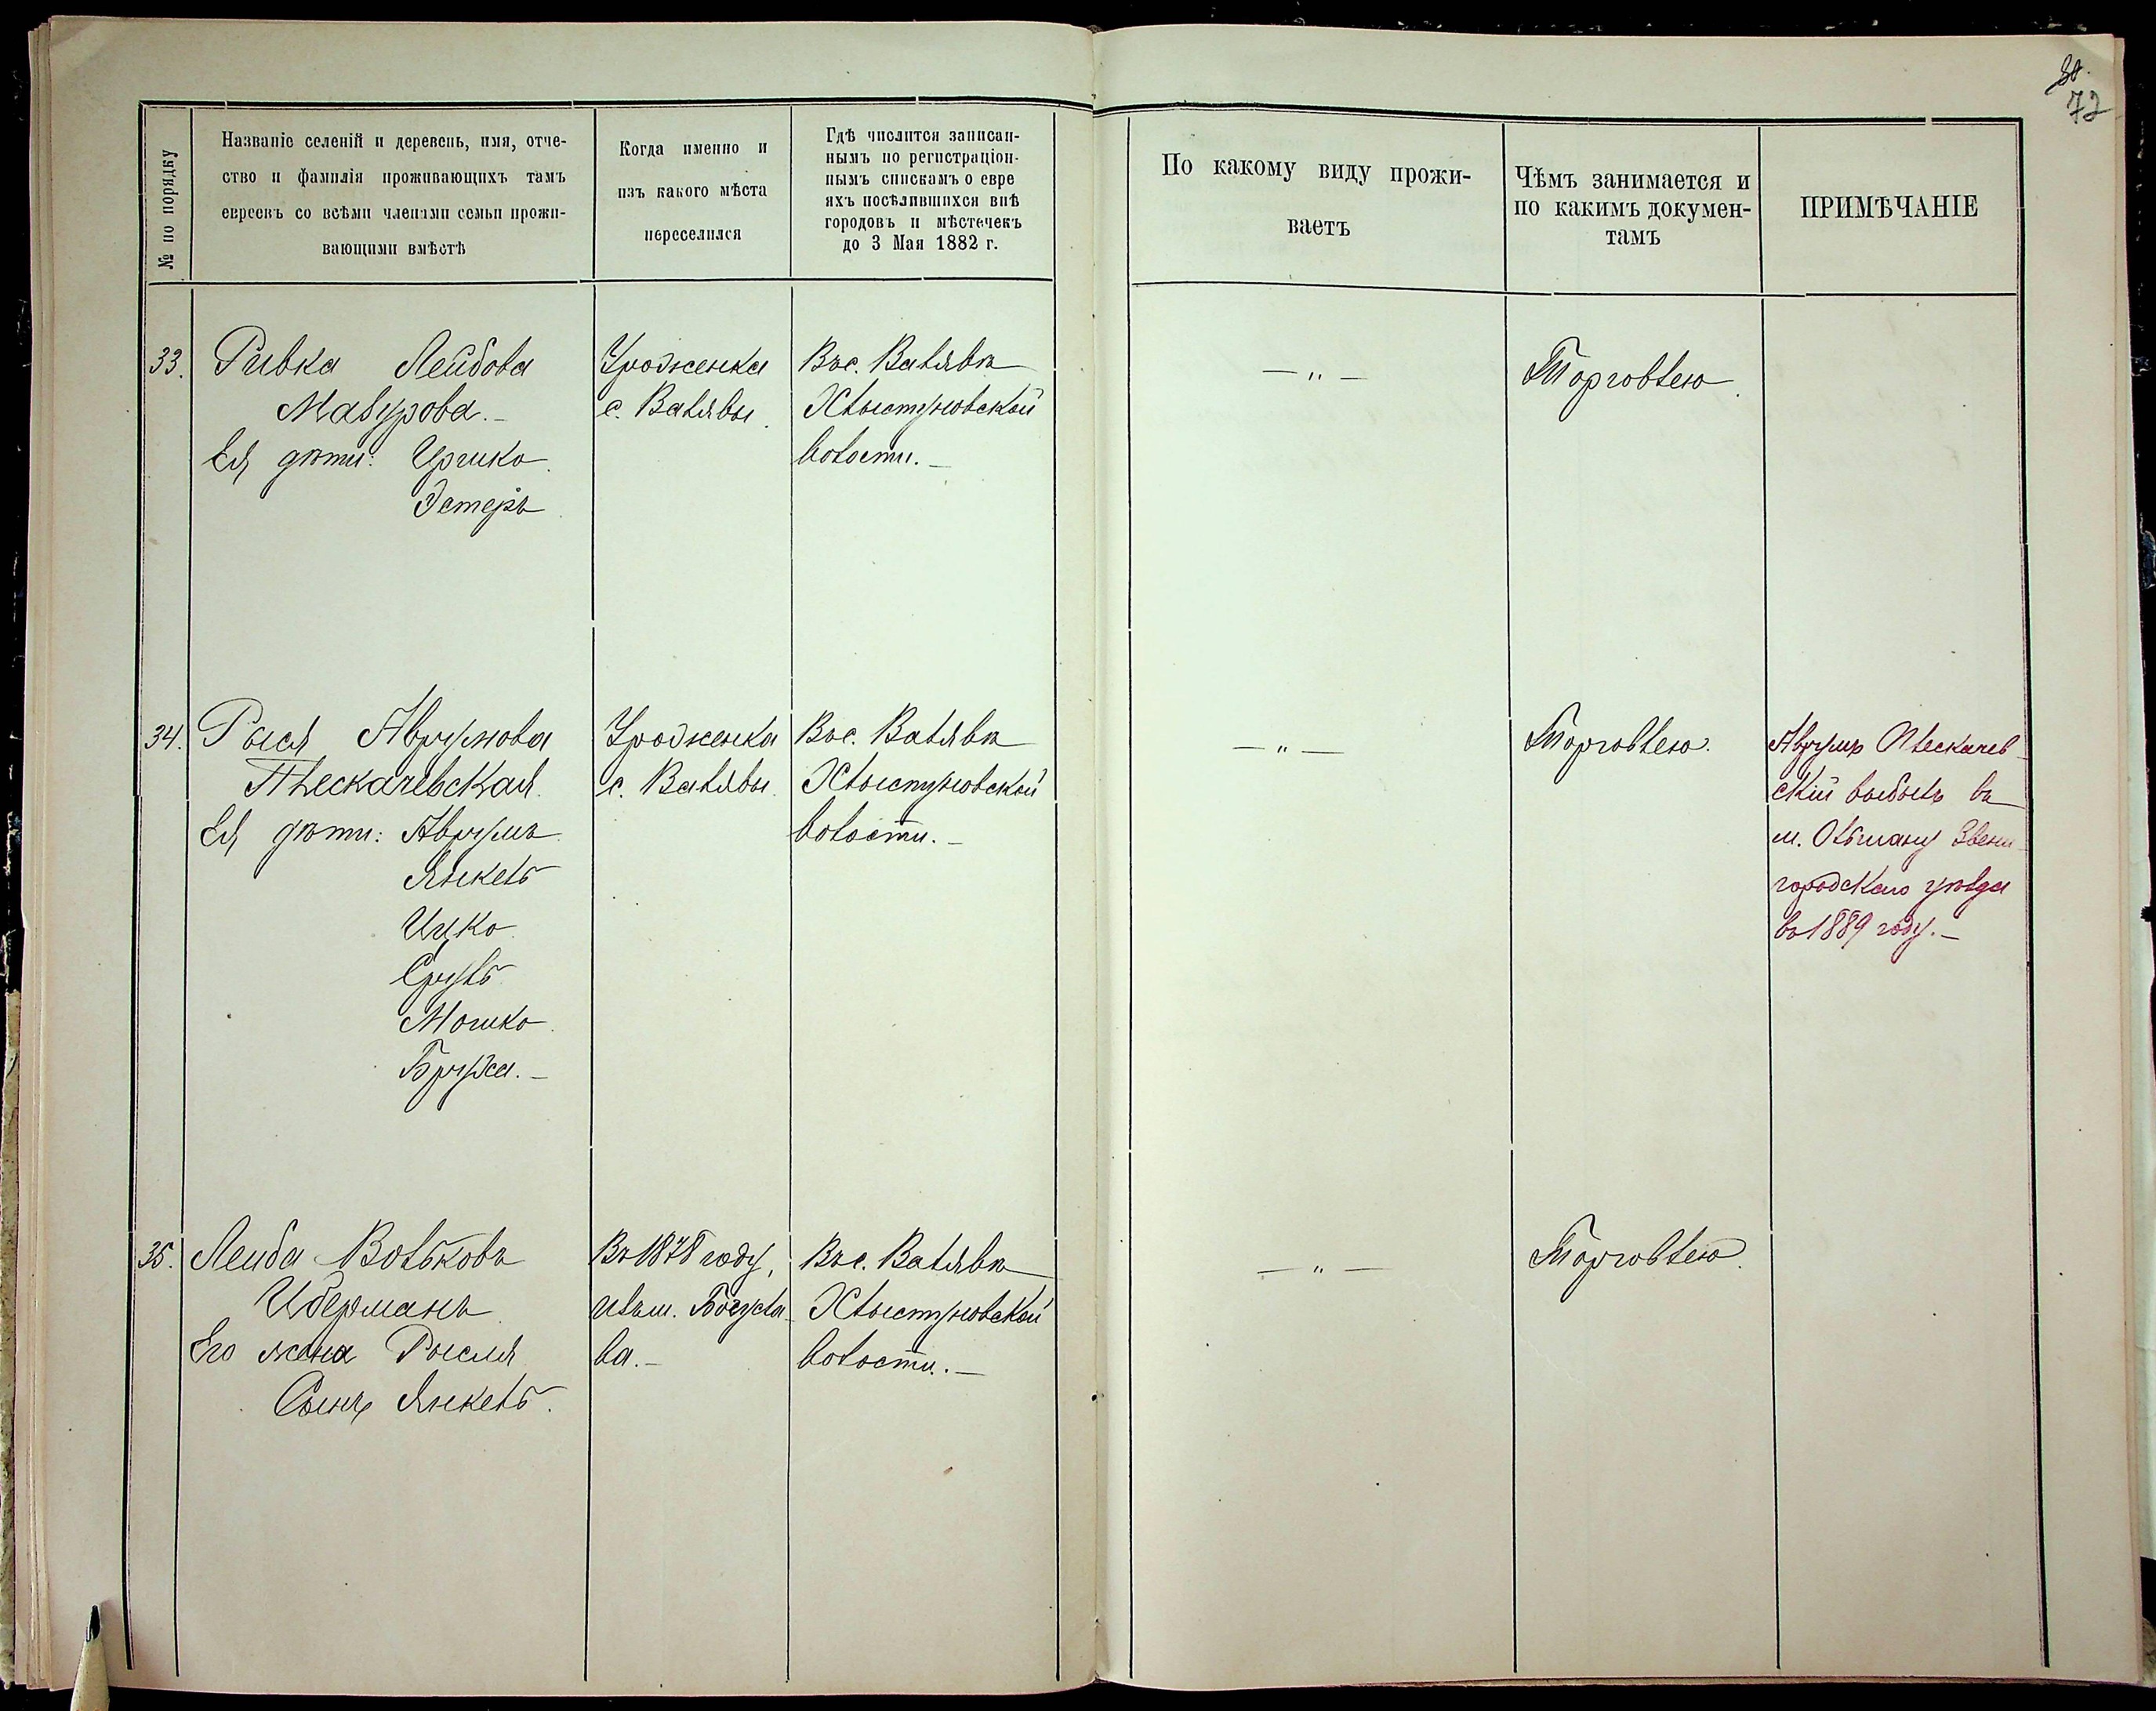 30.
72
№ по порядку
Названіе селеній и деревень, имя, отче-
ство и фамилія проживающихъ тамъ
евреевъ со всѣми членами семьи прожи-
вающими вмѣстѣ
Когда именно и
изъ какого мѣста
переселился
Гдѣ числится записан-
нымъ по регистраціон-
нымъ спискамъ о евре
яхъ поселившихся внѣ
городовъ и мѣстечекъ
до 3 Мая 1882 г.
По какому виду прожи-
ваетъ
Чѣмъ занимается и
по какимъ докумен-
тамъ
ПРИМѢЧАНІЕ
33. Ривка Лейбова
Мазурова.-
Ея дѣти: Иршко.
Эстеръ.
Уроженка
с. Валявы.
Въ с. Валявѣ
Хлыстуновской
волости.-
— „ —
Торговлею.
34. Рыся Аврумова
Плескачевская.
Ея дѣти: Аврумъ
Янкель
Ицко
Сруль
Мошко.
Бруха.-
Уроженка
с. Валявы.
Въ с. Валявѣ
Хлыстуновской
волости.-
— „ —
Торговлею.
Аврумъ Плескачев-
скій выбылъ въ
м. Ольшану Звени-
городскаго уѣзда
въ 1889 году.-
35. Лейба Вольковъ
Иберманъ
Его жена Рысля
Сынъ Янкель.
Въ 1878 году,
изъ м. Богусла-
ва.-
Въ с. Валявѣ
Хлыстуновской
волости.-
— „ —
Торговлею.